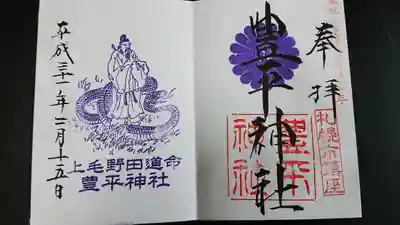 奉拝
豊平神社
豊平
神社
札幌
平成三十一年二月十五日
上毛野田道命
豊平神社